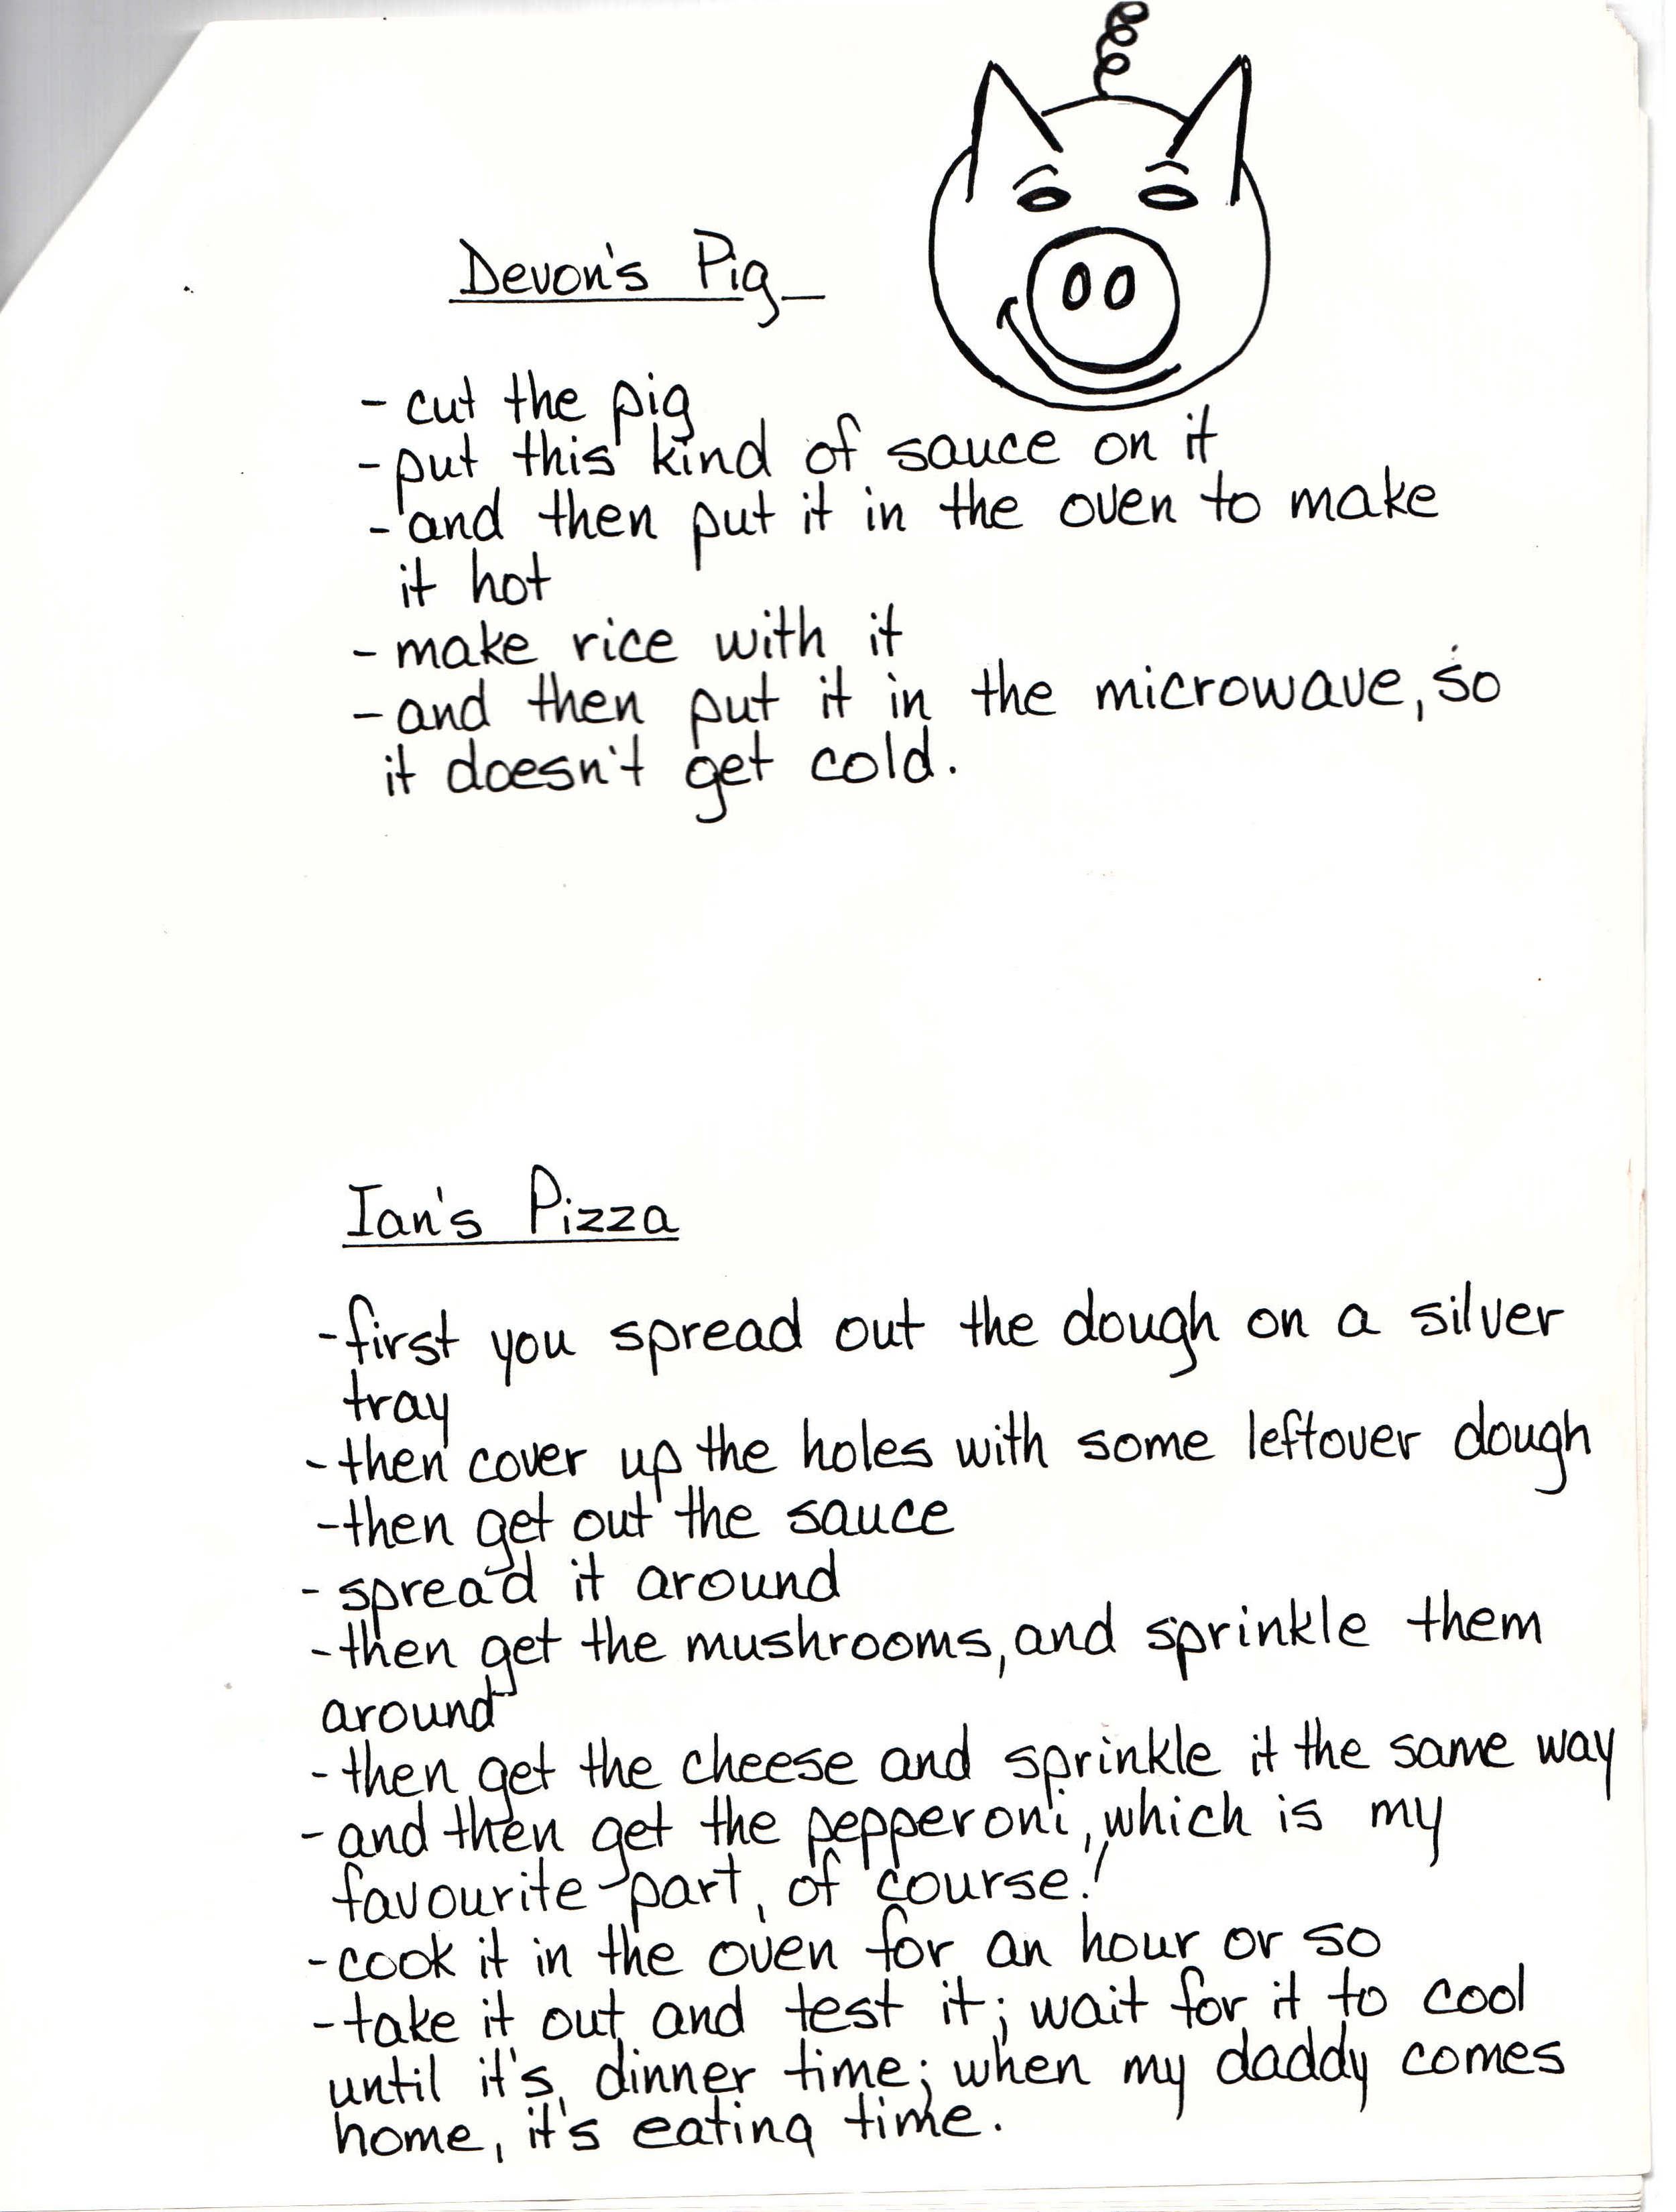 Devon's Pig
- cut the pig
- put this kind of sauce on it
- and then put it in the oven to make
it hot
- make rice with it
- and then put it in the microwave, so
it doesn't get cold.
Ian's Pizza
- first you spread out the dough on a silver
tray
- then cover up the holes with some leftover dough
- then get out the sauce
- spread it around
- then get the mushrooms, and sprinkle them
around
- then get the cheese and sprinkle it the same way
- and then get the pepperoni, which is my
favourite part, of course!
- cook it in the oven for an hour or so
- take it out and test it; wait for it to cool
until it's dinner time; when my daddy comes
home, it's eating time.